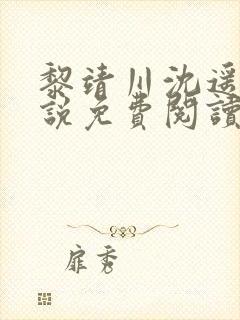 黎靖川沈遥
説免費閱讀
扉秀